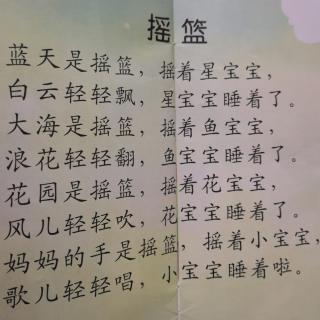 摇篮
蓝天是摇篮，摇着星宝宝，
白云轻轻飘，星宝宝睡着了。
大海是摇篮，摇着鱼宝宝，
浪花轻轻翻，鱼宝宝睡着了。
花园是摇篮，摇着花宝宝，
风儿轻轻吹，花宝宝睡着了。
妈妈的手是摇篮，摇着小宝宝，
歌儿轻轻唱，小宝宝睡着啦。